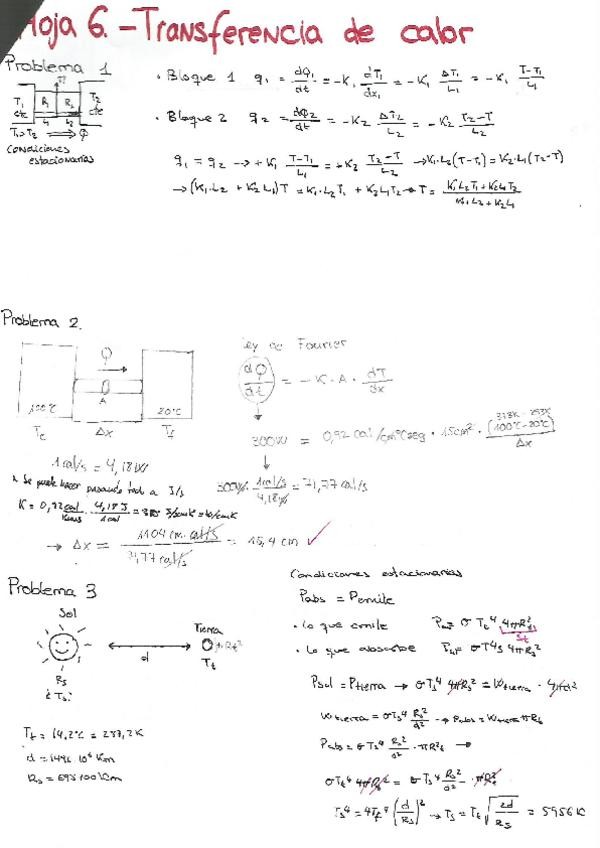 Hoja 6.-Transferencia de calor
Problema 1
T₁ cte R₁ R₂ T₂ cte
L₂
T₁>T₂ ⇒ Φ
Condiciones estacionarias
• Bloque 1 q₁ = dΦ₁/dt = -K₁ dT₁/dx₁ = -K₁ ΔT₁/L₁ = -K₁ (T-T₁)/L₁
• Bloque 2 q₂ = dΦ₂/dt = -K₂ ΔT₂/L₂ = -K₂ (T₂-T)/L₂
q₁ = q₂ → +K₁ (T-T₁)/L₁ = +K₂ (T₂-T)/L₂ → K₁·L₂(T-T₁) = K₂·L₁(T₂-T)
→ (K₁·L₂ + K₂L₁)T = K₁·L₂T₁ + K₂L₁T₂ → T = (K₁L₂T₁+K₂L₁T₂)/(K₁L₂+K₂L₁)
Problema 2.
100°C A 20°C
Tc Δx Tf
Ley de Fourier
dΦ/dt = -K·A·dT/dx
300W = 0,92 cal/cm°Cseg · 15cm² · (373K-293K) (100°C-20°C)/Δx
1cal/s = 4,18W
300W · 1cal/s / 4,18W = 71,77cal/s
* Se puede hacer pasando todo a J/s
→ Δx = 1104 cm·cal/s / 71,77 cal/s = 15,4 cm ✓
Problema 3
Sol
Tierra
d
Tt
Rs
¿Ts?
Tt = 14,2°C = 287,2K
d = 149,6 10⁶ Km
Rs = 695100Km
Condiciones estacionarias
Pabs = Pemite
• lo que emite σ Tt⁴ 4πRt²
St
• lo que absorbe σT⁴s 4πRs²
Psol = Ptierra → σTs⁴ 4πRs² = Wtierra · 4πd²
Wtierra = σTs⁴ Rs²/d² → Pabs = Wtierra πRt
Pabs = σTs⁴ Rs²/d² · πR²t →
σTt⁴ 4πRt² = σTs⁴ Rs²/d² · πRt²
Ts⁴ = 4Tt⁴ (d/Rs)² → Ts = Tt √(2d/Rs) = 5956K